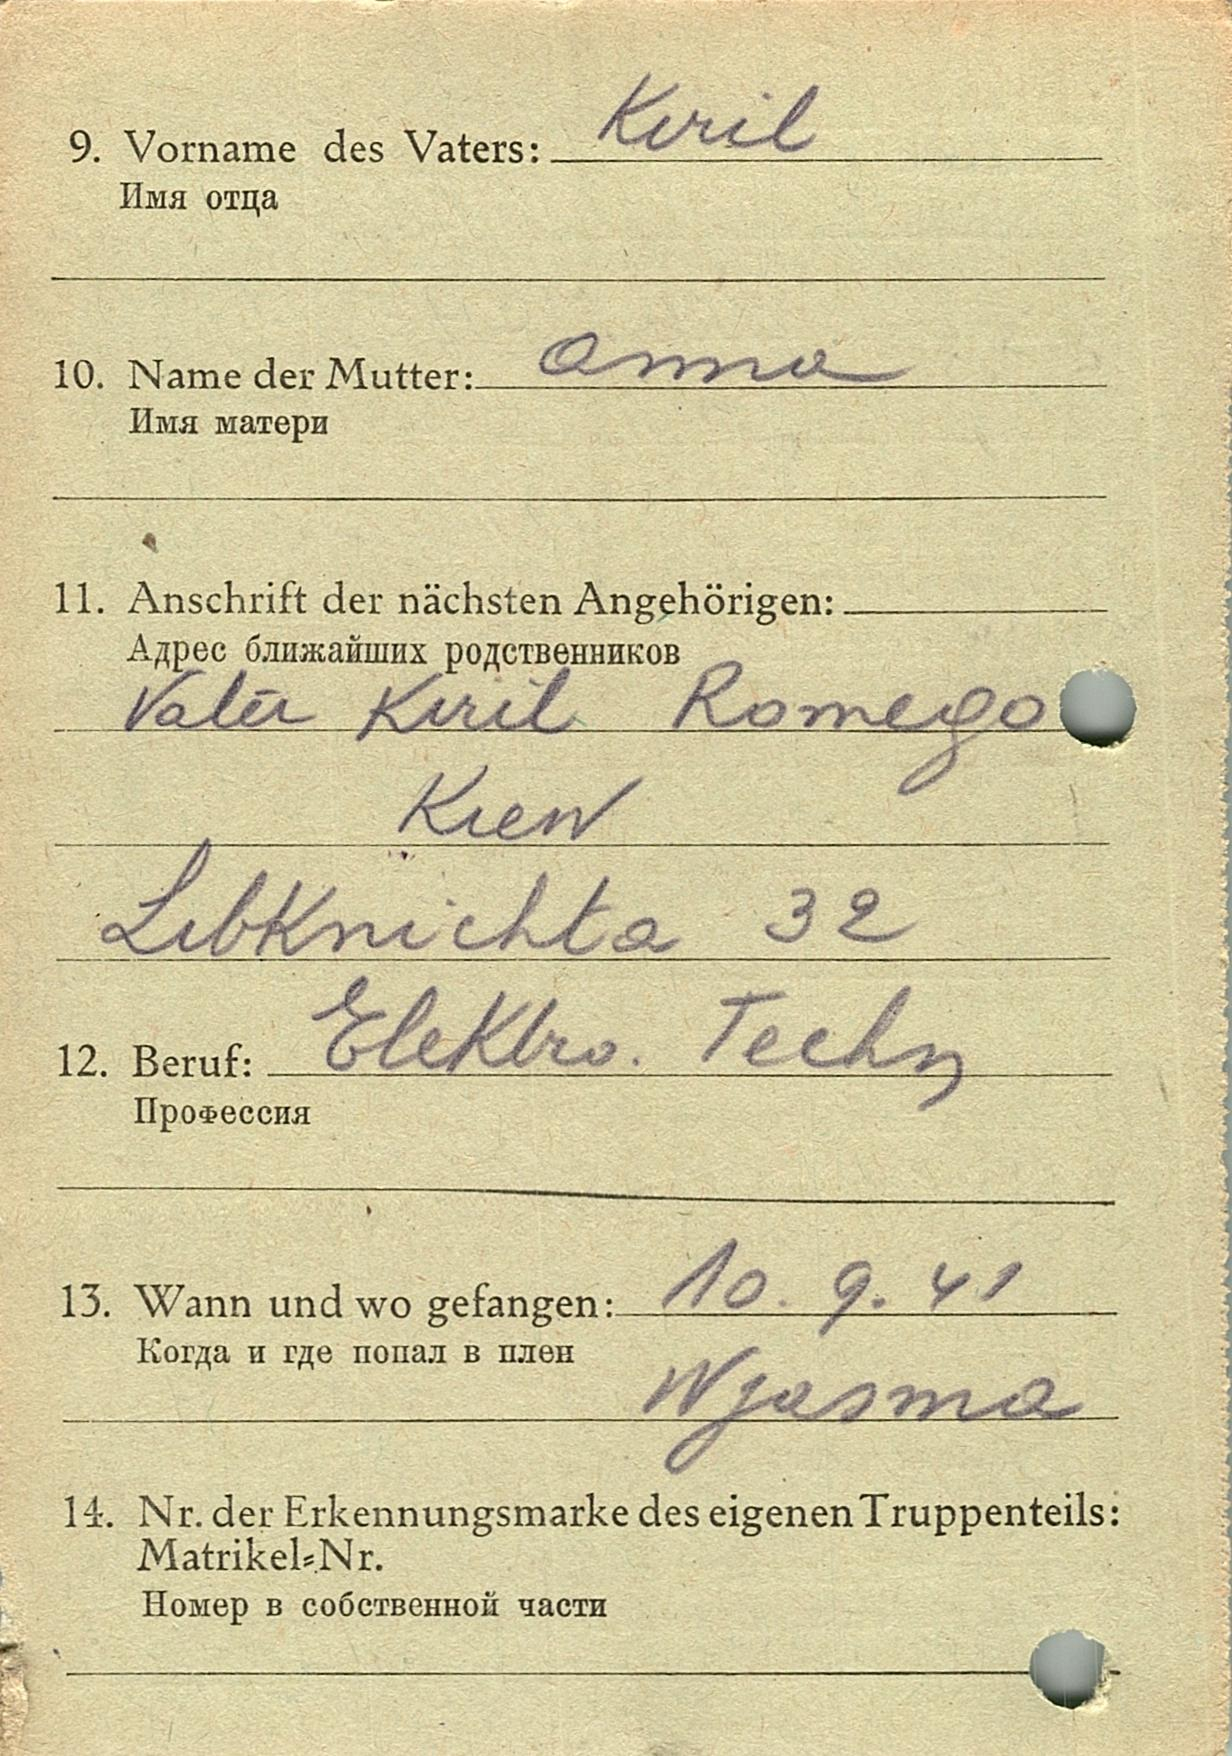 9. Vorname des Vaters: Kiril
Имя отца
10. Name der Mutter: Anna
Имя матери
11. Anschrift der nächsten Angehörigen:
Адрес ближайших родственников
Vater Kiril Romego
Kiew
Libknichta 32
12. Beruf: Elektro. Techn
Профессия
13. Wann und wo gefangen: 10. 9. 41
Когда и где попал в плен
Wjasma
14. Nr. der Erkennungsmarke des eigenen Truppenteils:
Matrikel-Nr.
Номер в собственной части